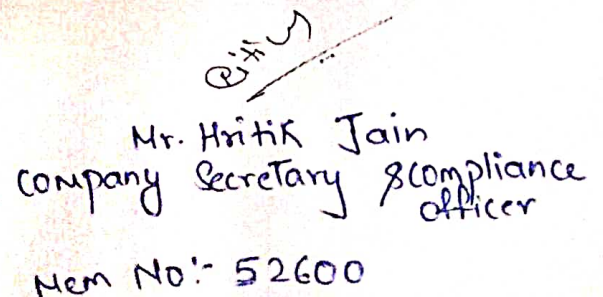 Mr. Hritik Jain
Company Secretary & Compliance
officer
Mem No:- 52600